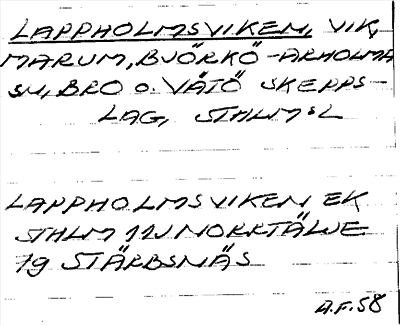 LAPPHOLMSVIKEN, VIK,
MARUM, BJÖRKÖ-ARHOLMA
SN, BRO O. VÄTÖ SKEPPS-
LAG, STHLMS L
LAPPHOLMSVIKEN EK
STHLM 11J NORRTÄLJE
19 STÄRBSNÄS
A.F. 58